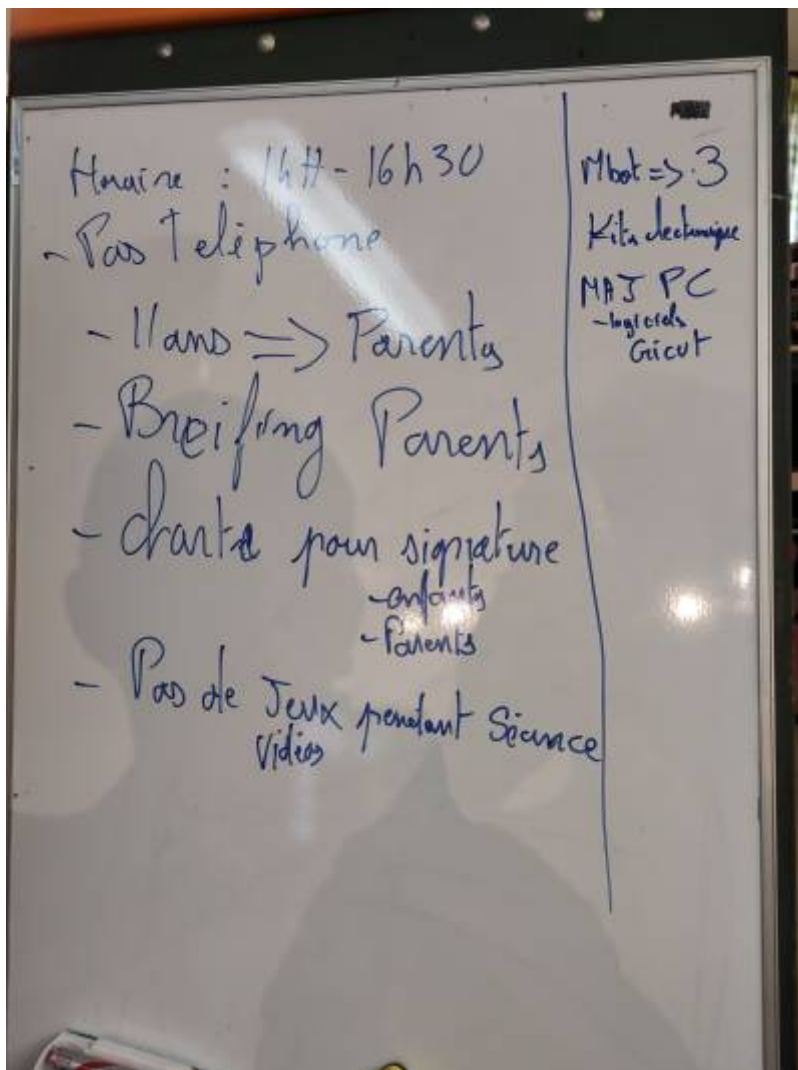 Horaire : 14H - 16h30
- Pas Telephone
- 11ans => Parents
- Breifing Parents
- charte pour signature
- enfants
- Parents
- Pas de Jeux pendant Séance
Vidéos
Mbot => 3
Kits électronique
MAJ PC
- logiciels